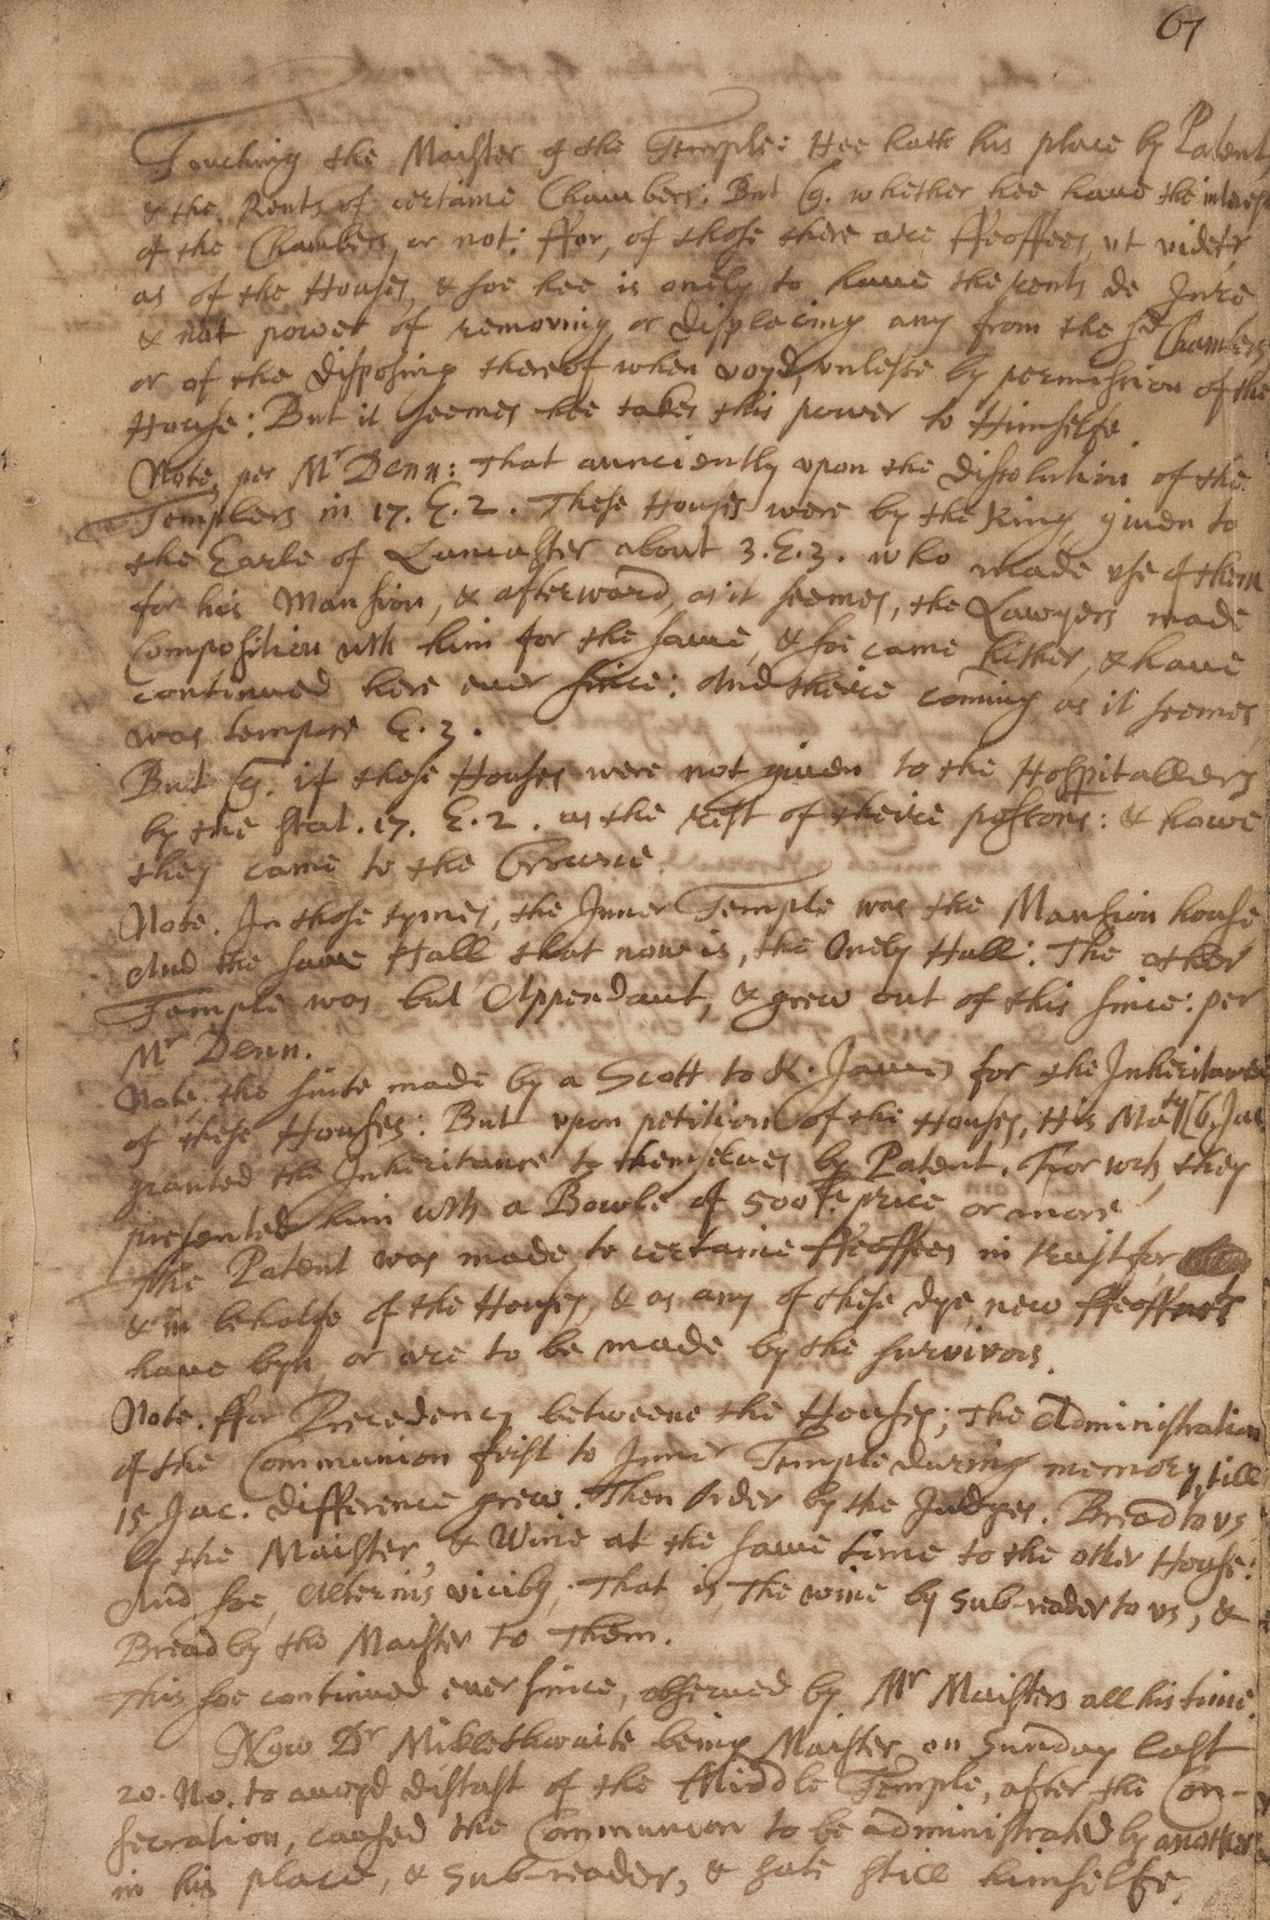 67
Touching the Maister of the Temple: Hee hath his place by Patent,
& the Rents of certaine Chambers: But q. whether hee haue the interest
of the Chambers, or not: ffor, of those there are ffeoffees, vt videtr
as of the Houses, & soe hee is onely to haue the rents de Jure
& not power of removing or displacing any from the sd Chambers
or of the disposing thereof when voyd, vnlesse by permission of the
House: But it seemes hee takes this power to Himselfe.
Note, per Mr Denn: That aunciently vpon the dissolution of the
Templers in 17. E. 2. These Houses were by the King given to
the Earle of Lancaster about 3. E. 3. who made vse of them
for his Mansion, & afterward, as it seemes, the Lawyers made
Composition wth him for the same, & soe came hither, & haue
continued here euer since: And theire coming as it seemes
was tempore E. 3.
But q. if these Houses were not giuen to the Hospitallers
by the stat. 17. E. 2. as the rest of theire possions: & howe
they came to the Crowne.
Note. In those tymes, the Inner Temple was the Mansion house
And the same Hall that now is, the Onely Hall: The other
Temple was but Appendant, & grew out of this since: per
Mr Denn.
Note. the suite made by a Scott to K. James for the Inheritance
of these Houses: But vpon petition of the Houses, His Maty [6. Jac.
granted the Inheritance to themselues by Patent. For wch, they
presented him wth a Bowle of 500li. price or more
The Patent was made to certaine ffeoffees in trust for
& in behalfe of the Houses, & as any of these dye, new ffeoffmts
haue byn, or are to be made by the survivors.
Note. ffor Precedency betweene the Houses; The Administration
of the Communion first to Inner Temple during memory, till
15 Jac. difference grew. Then Order by the Judges. Bread to vs
by the Maister, & Wine at the same time to the other House:
And soe, Alternis vicibs, That is, The wine by Sub-reader to vs, &
Bread by the Maister to Them.
This soe continued euer since, obserued by Mr Maisters all his time.
Now Dr Miklethwaite being Maister, on Sunday last
20. No. to avoyd distast of the Middle Temple, after the Con-
secration, caused the Communion to be administrated by another
in his place, & Sub-reader, & sate still himselfe.